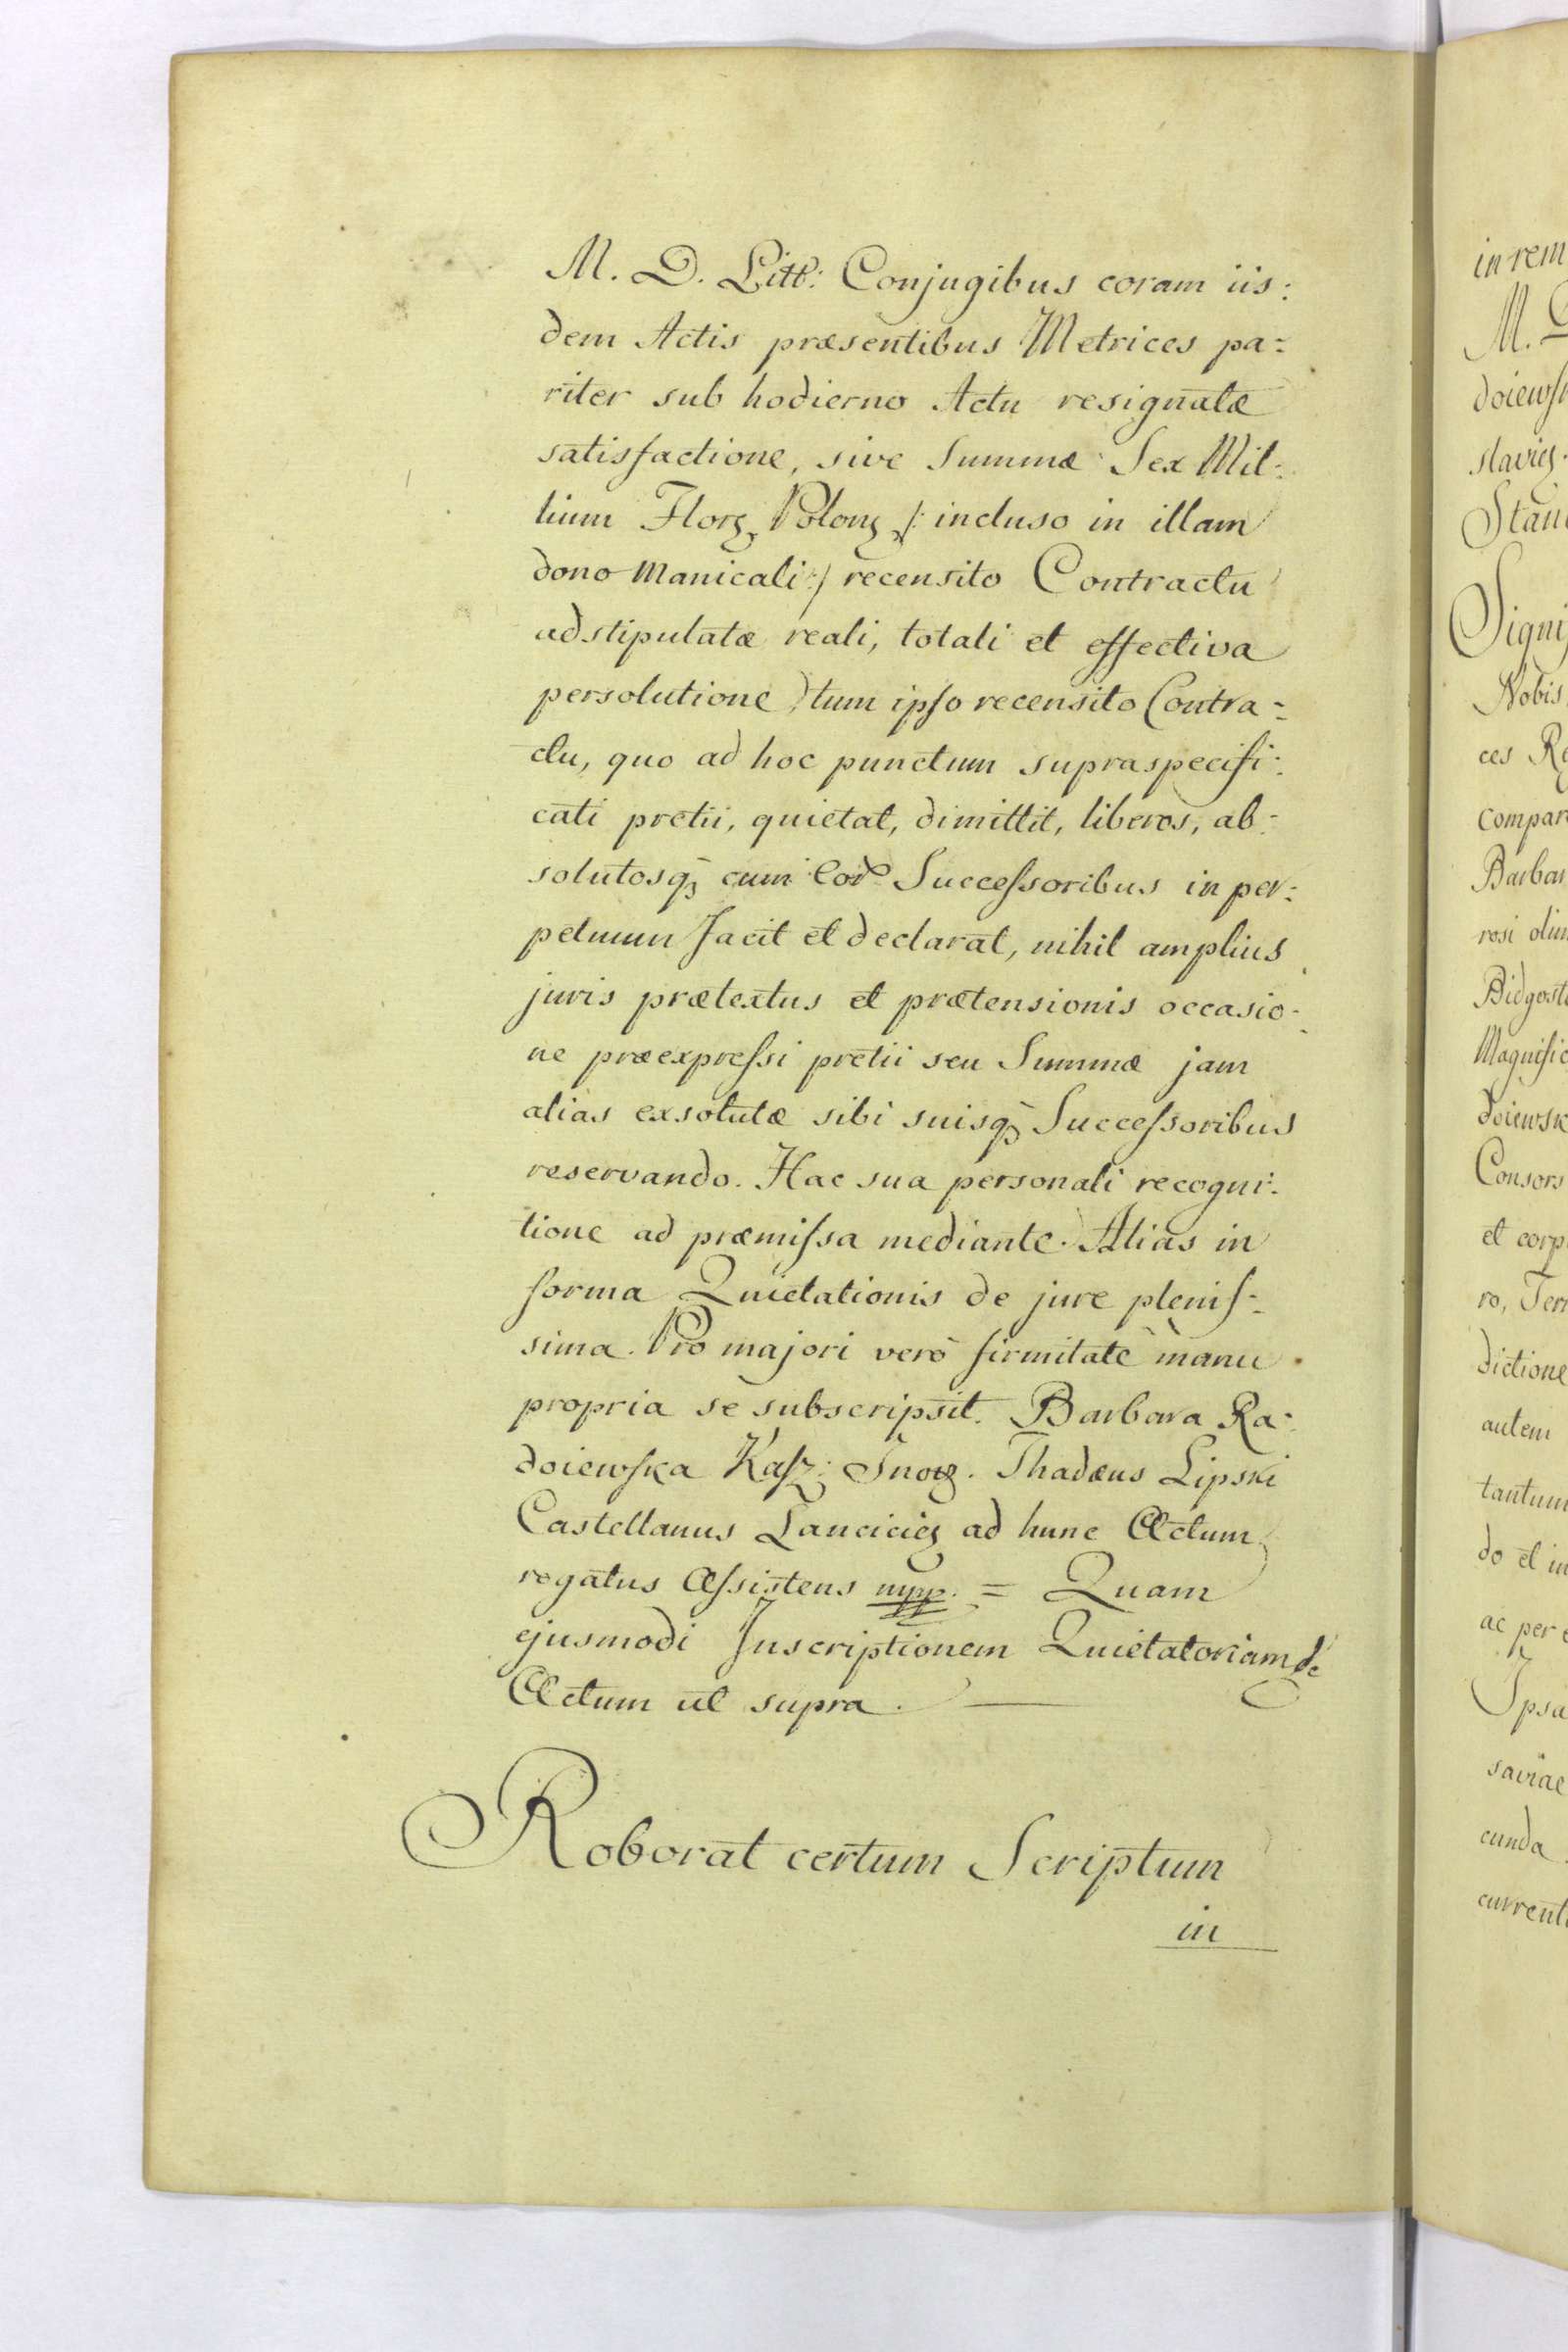 M. D. Litt: Conjugibus coram iis:
dem Actis præsentibus Metrices pa:
riter sub hodierno Actu resignatæ
satisfactione, sive Summæ Sex Mil:
lium Florꝫ Polonꝫ /: incluso in illam
dono Manicali :/ recensito Contractu
adstipulatæ reali, totali et effectiva
persolutione, tum ipſo recensito Contra:
ctu, quo ad hoc punctum supraspecifi:
cati pretii, quietat, dimittit, liberos, ab:
solutosqꝫ cum Eord Succeſsoribus in per:
petuum facit et declarat, nihil amplius
juris prætextus et prætensionis occasio:
ne præexpreſsi pretii seu Summæ jam
alias exsolutæ sibi suisqꝫ Succeſsoribus
reservando. Hac sua personali recogni:
tione ad præmiſsa mediante. Alias in
forma Quietationis de jure pleniſ:
sima. Pro majori verò firmitate manu
propria se subscripsit. Barbara Ra:
doiewſka Kaſz: Inowꝫ. Thadæus Lipski
Castellanus Lanciciꝫ ad hunc Actum
rogatus Aſsistens mpp. = Quam
ejusmodi Inscriptionem Quietatoriam &c
Actum ut supra.
Roborat certum Scriptum
in
in rem
M.
doiewſk
slaviꝫ.
Stan
Signi
Nobis
ces Re
compar
Barbar
rosi olim
Bidgost
Magnific
doiewsk
Consors
et corp
ro, Ter
dictione
autem
tantum
do et in
ac per
Ipsa
saviæ
cunda
currenti